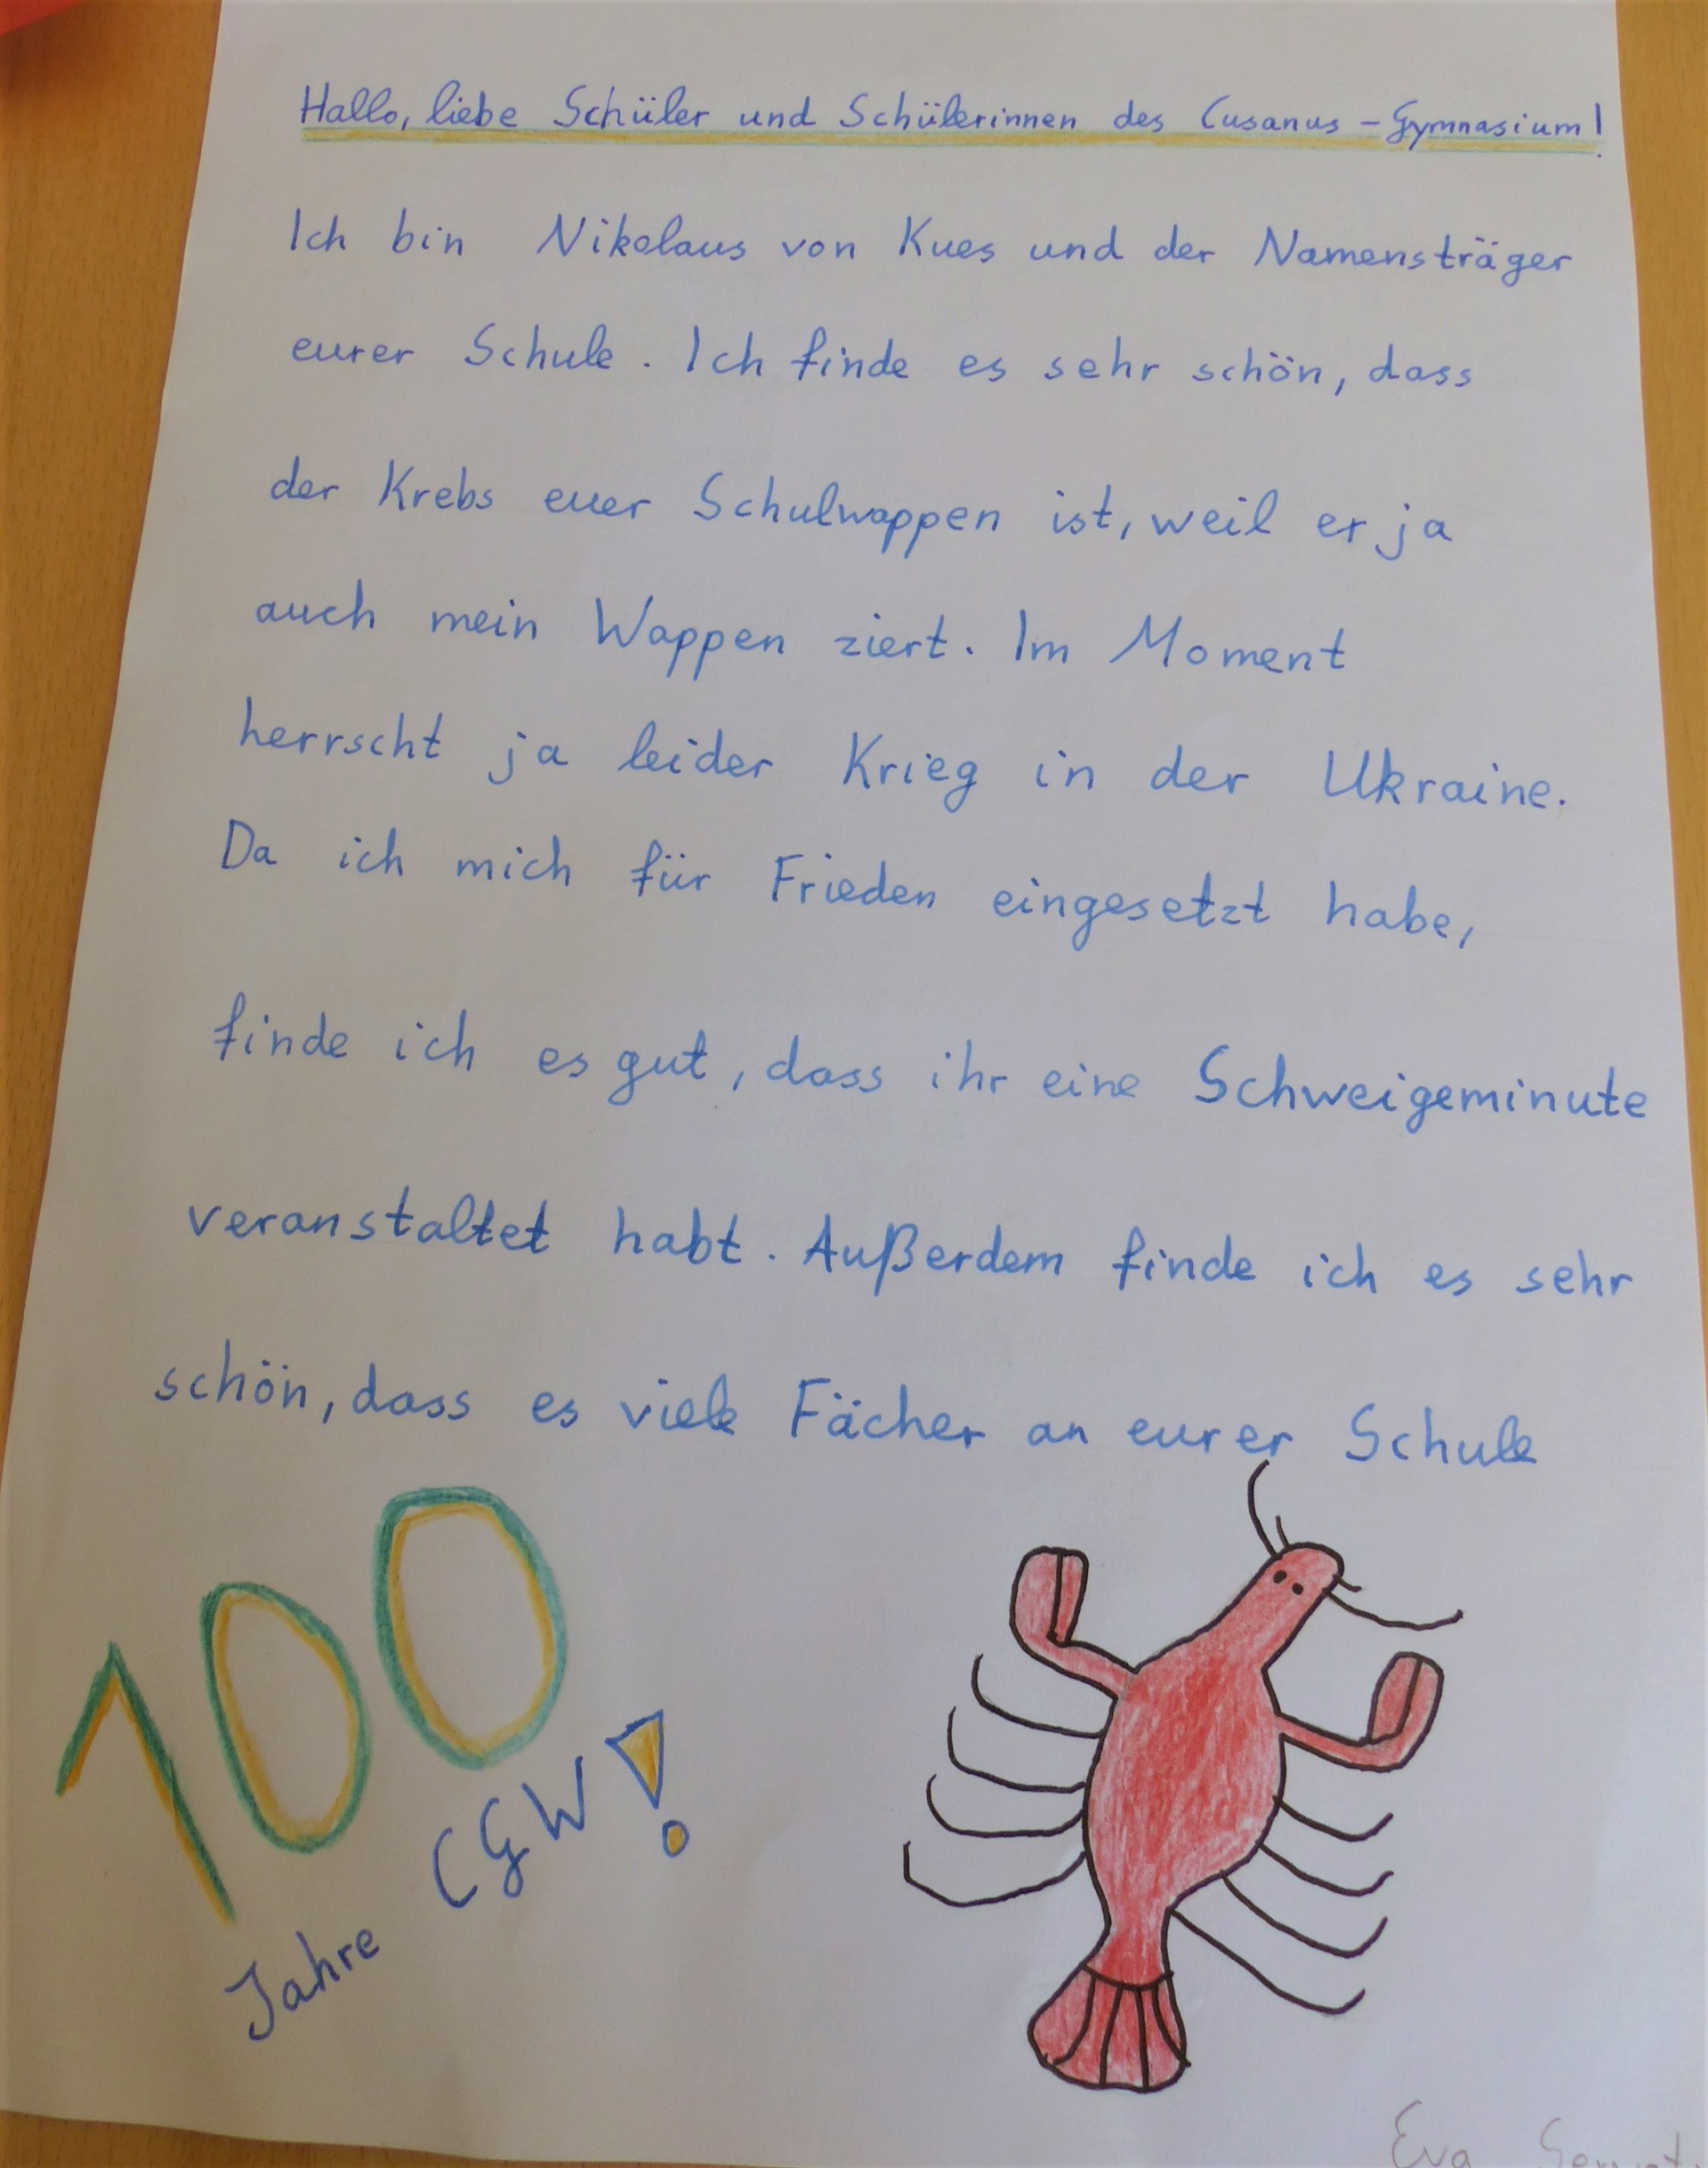 Hallo, liebe Schüler und Schülerinnen des Cusanus-Gymnasium!
Ich bin Nikolaus von Kues und der Namensträger
eurer Schule. Ich finde es sehr schön, dass
der Krebs euer Schulwappen ist, weil er ja
auch mein Wappen ziert. Im Moment
herrscht ja leider Krieg in der Ukraine.
Da ich mich für Frieden eingesetzt habe,
finde ich es gut, dass ihr eine Schweigeminute
veranstaltet habt. Außerdem finde ich es sehr
schön, dass es viele Fächer an eurer Schule
100
Jahre CGW!
Eva